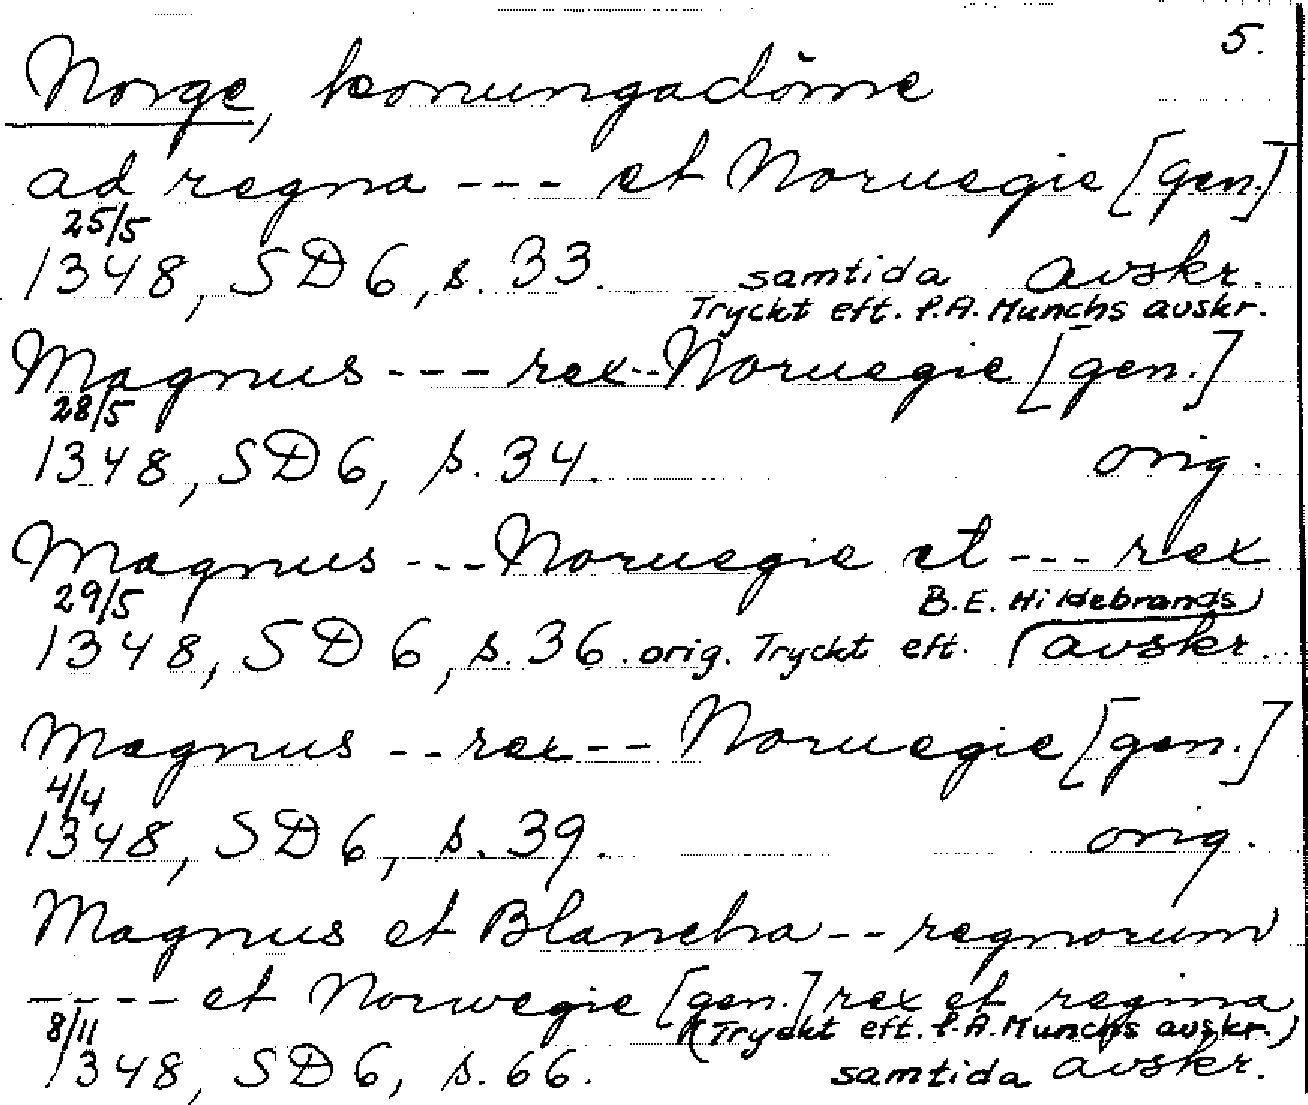 5.
Norge, konungadöme
ad regna --- et Noruegie [gen.]
25/5
1348, SD 6, s. 33. samtida avskr.
Tryckt eft. P.A. Munchs avskr.
Magnus --- rex -- Noruegie [gen.]
28/5
1348, SD 6, s. 34. orig.
Magnus --- Noruegie et --- rex
29/5 B.E. Hildebrands
1348, SD 6, s. 36. orig. Tryckt eft. avskr.
Magnus -- rex -- Noruegie [gen.]
4/4
1348, SD 6, s. 39. orig.
Magnus et Blancha -- regnorum
---- et Norwegie [gen.] rex et regina
8/11 (Tryckt eft. P.A. Munchs avskr.)
1348, SD 6, s. 66. samtida avskr.